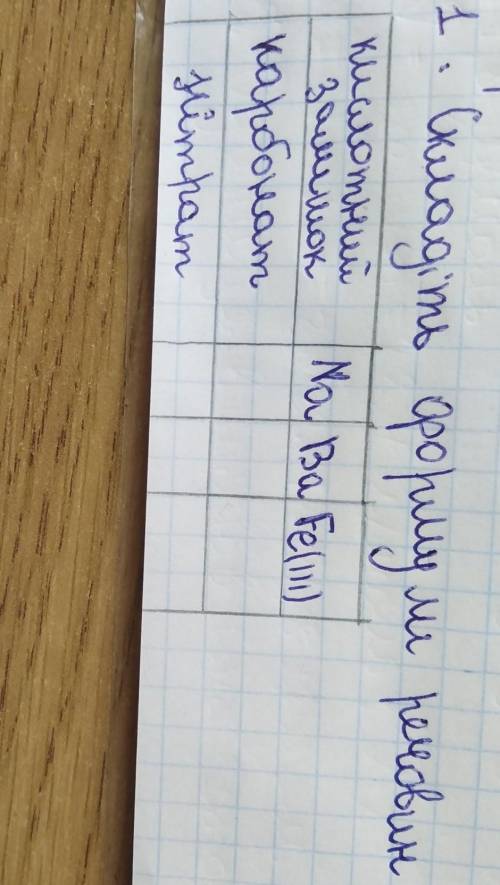 1. Складіть формули речовин
кислотний залишок Na Ba Fe(III)
карбонат
нітрат